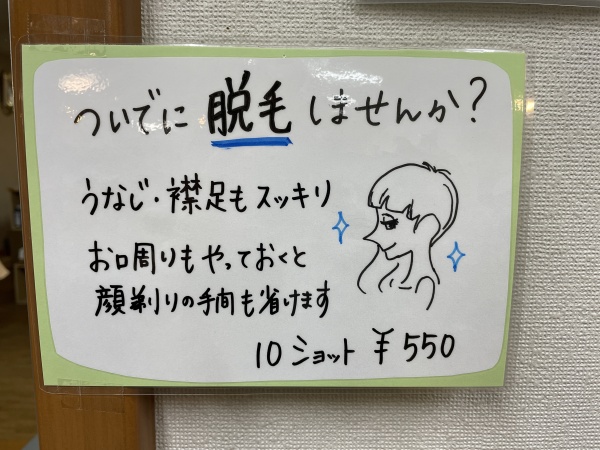 ついでに脱毛しませんか?
うなじ・襟足もスッキリ
お口周りもやっておくと
顔剃りの手間も省けます
10ショット ¥550